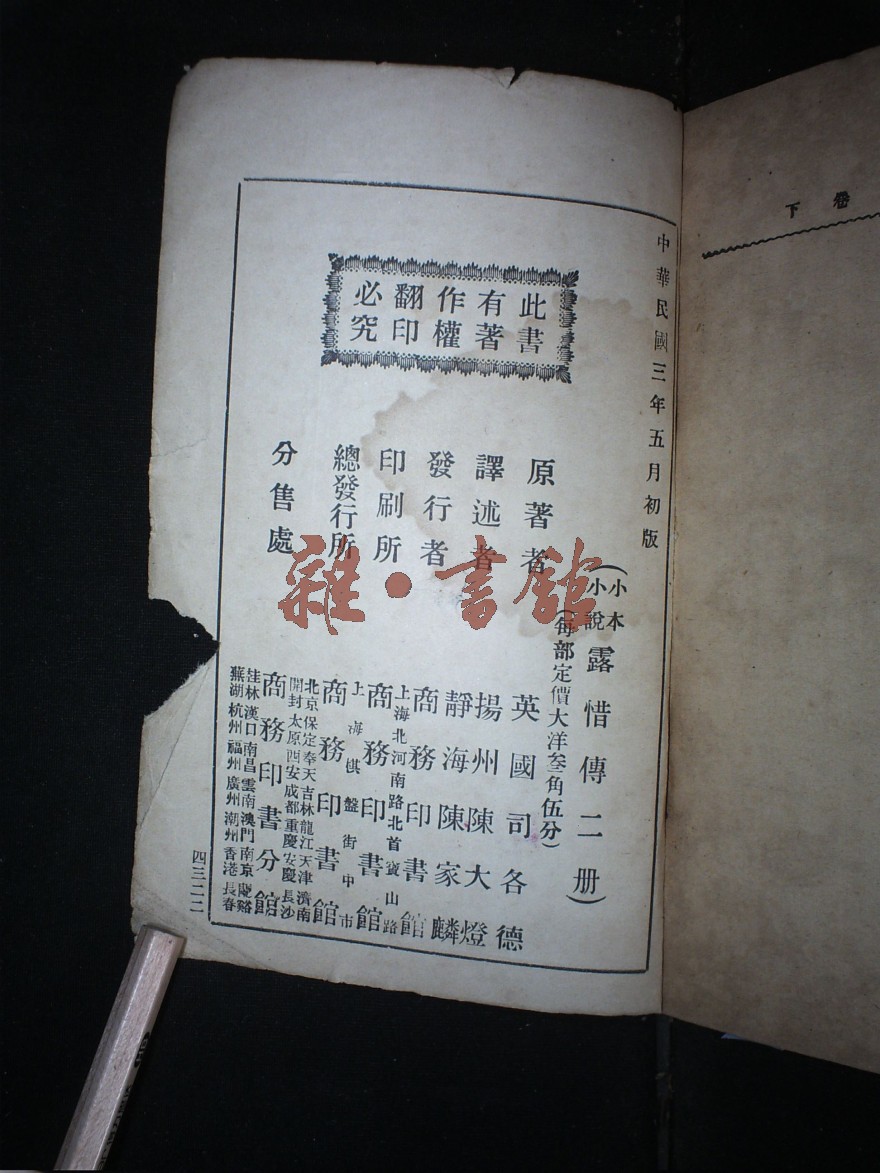 下卷
中華民國三年五月初版
此書
有著
作權
翻印
必究
(小本小說露惜傳二册)
(每部定價大洋叁角伍分)
原著者 英國司各德
譯述者 揚州陳大燈
靜海陳家麟
發行者 商務印書館
印刷所 上海北河南路北首寶山路
商務印書館
總發行所 上海棋盤街中市
商務印書館
分售處 北京保定奉天吉林龍江天津濟南
開封太原西安成都重慶安慶長沙
商務印書分館
桂林漢口南昌雲南澳門南京
蕪湖杭州福州廣州潮州香港長春
四三二二
雜·書舘